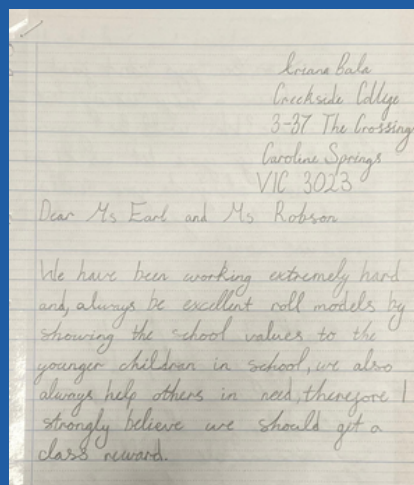 Ariana Bala
Creekside College
3-37 The Crossing
Caroline Springs
VIC 3023
Dear Ms Earl and Ms Robson
We have been working extremely hard
and, always be excellent roll models by
showing the school values to the
younger children in school, we also
always help others in need, therefore I
strongly believe we should get a
class reward.